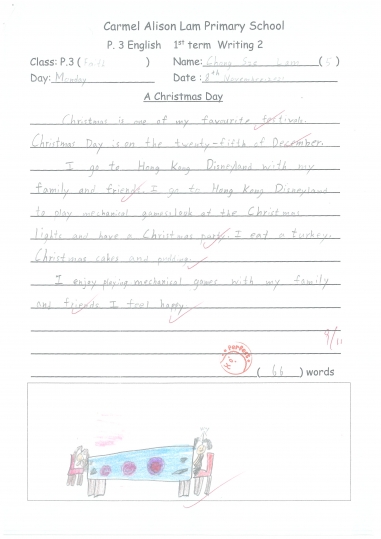 Carmel Alison Lam Primary School
P. 3 English 1st term Writing 2
Class: P.3 ( ) Name: Chong Sze Lam ( 5 )
Day: Monday Date : 8th November
A Christmas Day
Christmas is one of my favourite festivals.
Christmas Day is on the twenty-fifth of December.
I go to Hong Kong Disneyland with my
family and friends. I go to Hong Kong Disneyland
to play mechanical games, look at the Christmas
lights and have a Christmas party. I eat a turkey,
Christmas cakes and pudding.
I enjoy playing mechanical games with my family
and friends. I feel happy.
9/11
Perfect
( 66 ) words